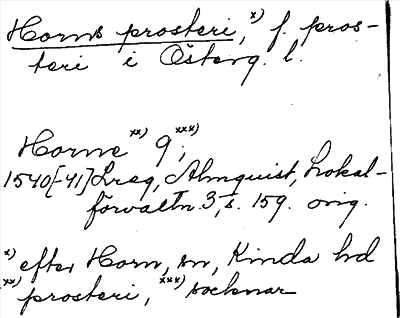 Horns prosteri, x) f. pros-
teri i Österg. l.
Horne xx) 9 xxx);
1540[-41] Lreg, Almquist, Lokal-
förvaltn. 3, s. 159. orig.
x) efter Horn, sn, Kinda hd
xx) prosteri, xxx) socknar